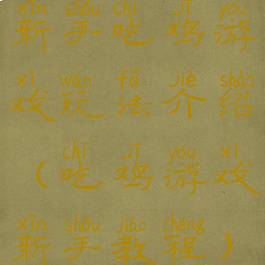 xīn shǒu chī jī yóu
新手吃鸡游
xì wán fǎ jiè shào
戏玩法介绍
chī jī yóu xì
（吃鸡游戏
xīn shǒu jiào chéng
新手教程）